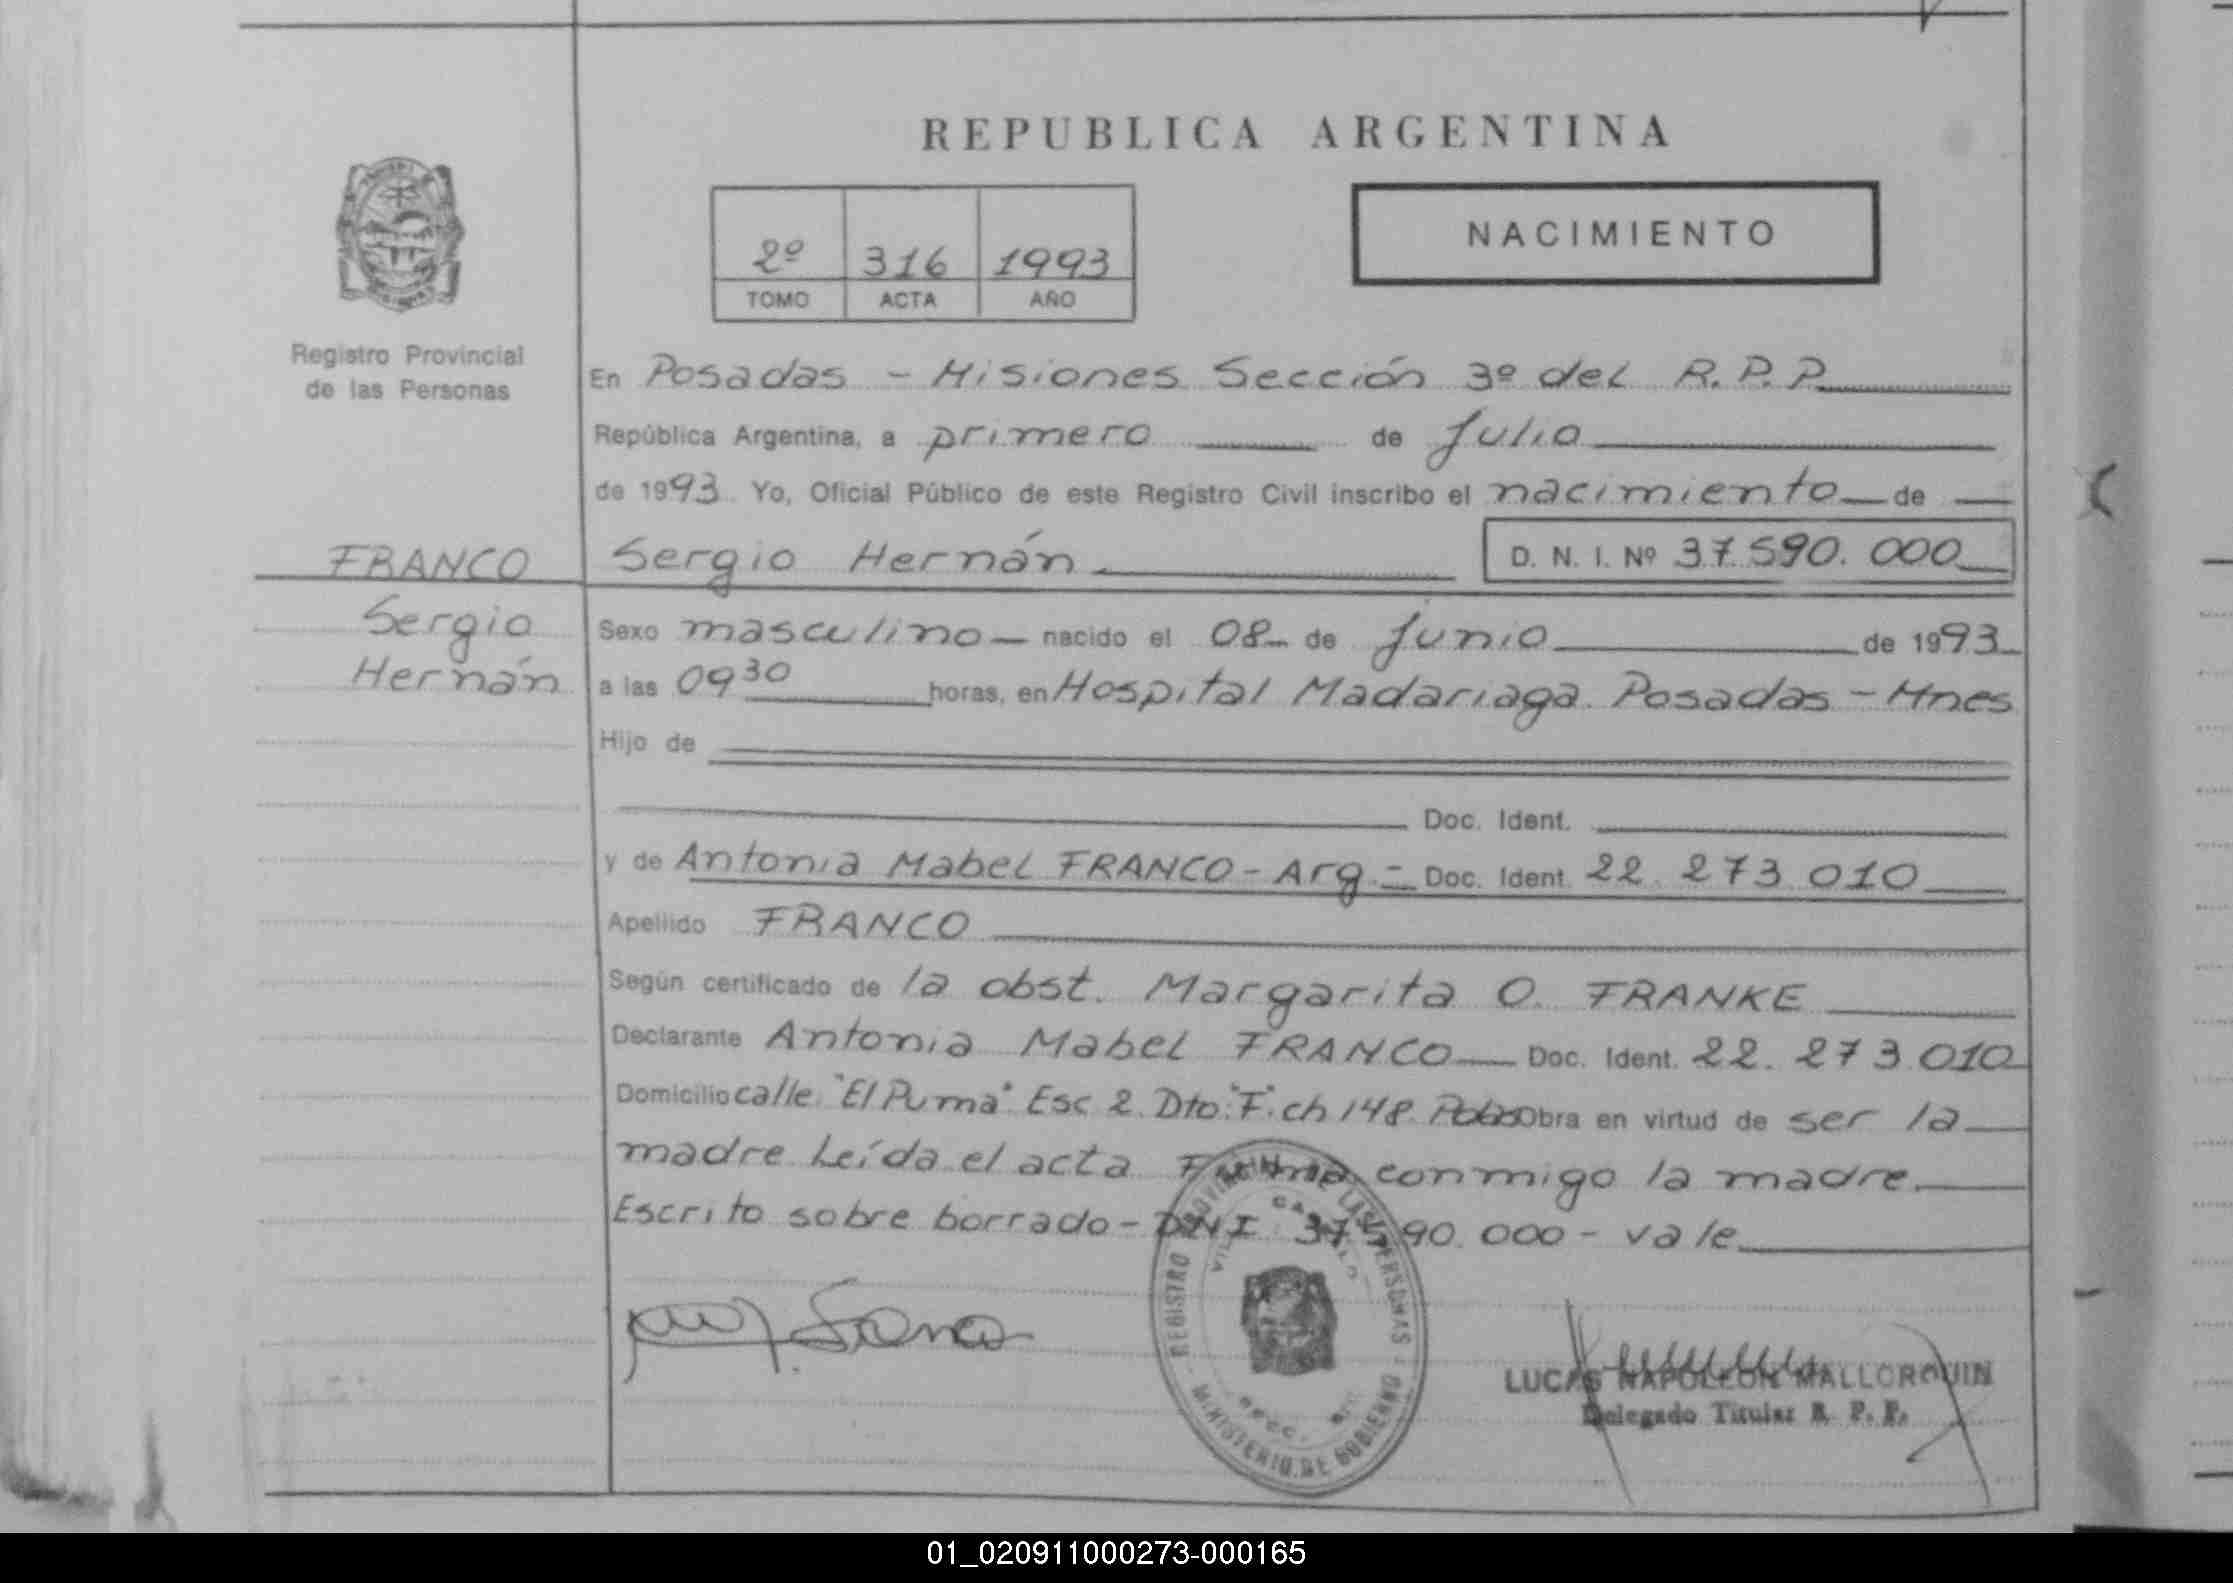 REPUBLICA ARGENTINA
2º 316 1993
TOMO ACTA AÑO
NACIMIENTO
Registro Provincial
de las Personas
En Posadas - Misiones Sección 3º del R.P.P.
República Argentina, a primero de Julio
de 1993 Yo, Oficial Público de este Registro Civil inscribo el nacimiento de
FRANCO
Sergio
Hernán
Sergio Hernán D. N. I. Nº 37.590.000
Sexo masculino nacido el 08 de Junio de 1993
a las 09 30 horas, en Hospital Madariaga. Posadas - Mnes
Hijo de
Doc. Ident.
y de Antonia Mabel FRANCO - Arg. - Doc. Ident. 22.273.010
Apellido FRANCO
Según certificado de la obst. Margarita O. FRANKE
Declarante Antonia Mabel FRANCO Doc. Ident. 22.273.010
Domicilio calle "El Puma" Esc 2 Dto. "F" ch 148 Obra en virtud de ser la
madre. Leída el acta Firma conmigo la madre.
Escrito sobre borrado - DNI 37.590.000 - vale
Franco
REGISTRO PROVINCIAL DE LAS PERSONAS
MINISTERIO DE GOBIERNO
LUCAS NAPOLEON MALLORQUIN
Delegado Titular R. P. P.
01_020911000273-000165